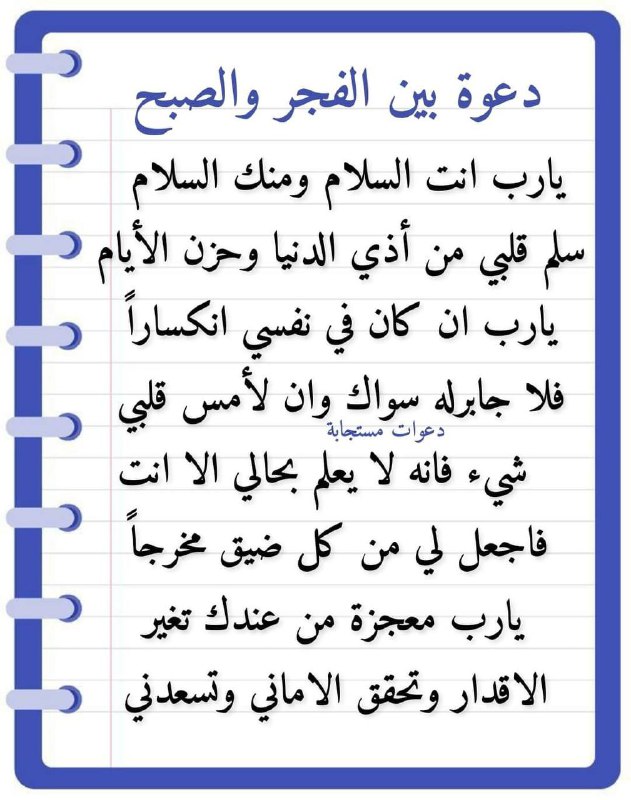 دعوة بين الفجر والصبح
يارب انت السلام ومنك السلام
سلم قلبي من أذي الدنيا وحزن الأيام
يارب ان كان في نفسي انكساراً
فلا جابرله سواك وان لأمس قلبي
دعوات مستجابة
شيء فانه لا يعلم بحالي الا انت
فاجعل لي من كل ضيق مخرجاً
يارب معجزة من عندك تغير
الاقدار وتحقق الاماني وتسعدني